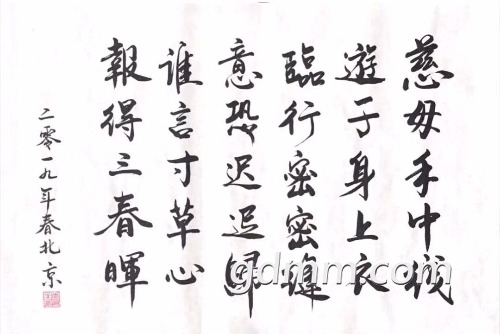 慈母手中线
遊子身上衣
臨行密密縫
意恐迟迟歸
谁言寸草心
報得三春暉
二零一九年春北京
gdmm.com